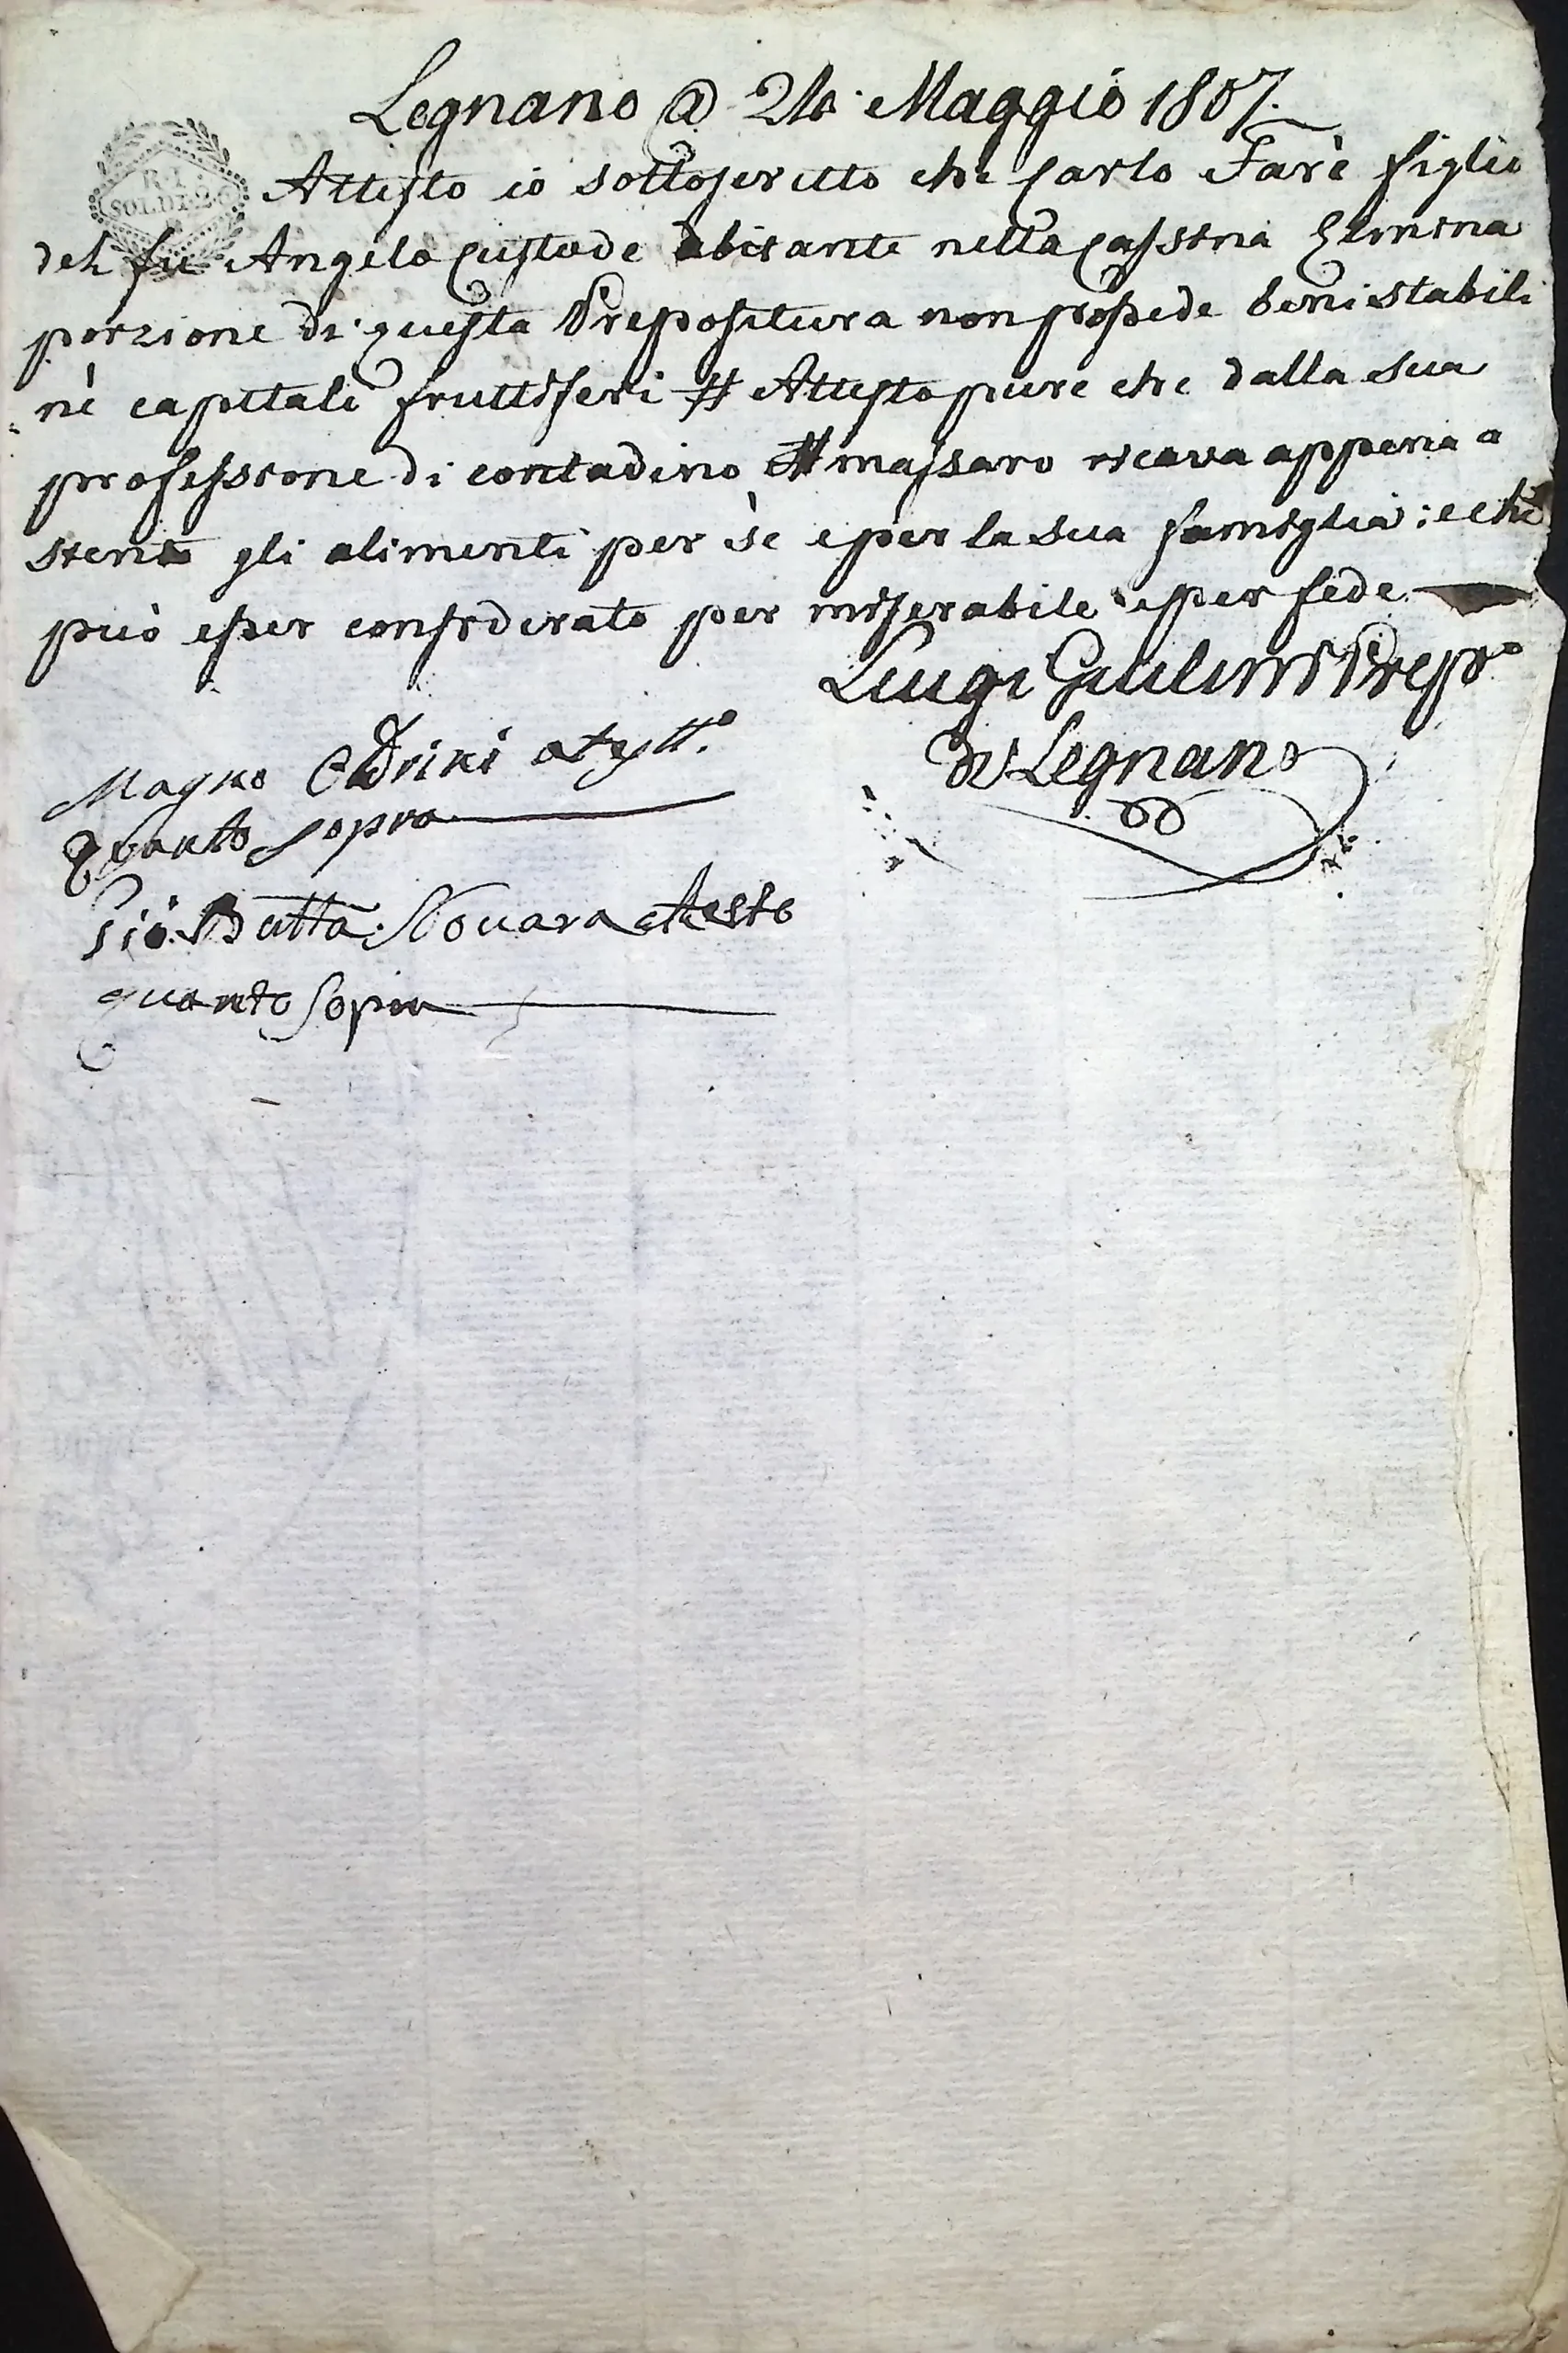 Legnano @ 24 Maggio 1807.
R. I.
SOLDI 26
Attesto io sottoscritto che Carlo Farè figlio
del fu Angelo Custode abitante nella Cassina
porzione di questa Prepositura non possede beni stabili
nè capitali fruttiferi # Attesto pure che dalla sua
professione di contadino # massaro ricava appena a
stento gli alimenti per sè e per la sua famiglia: e che
può esser considerato per miserabile e per fede
Luigi Giulini Prepo
di Legnano
Magno
quanto sopra
Gio. Batta. Novara Atesto
quanto Sopra